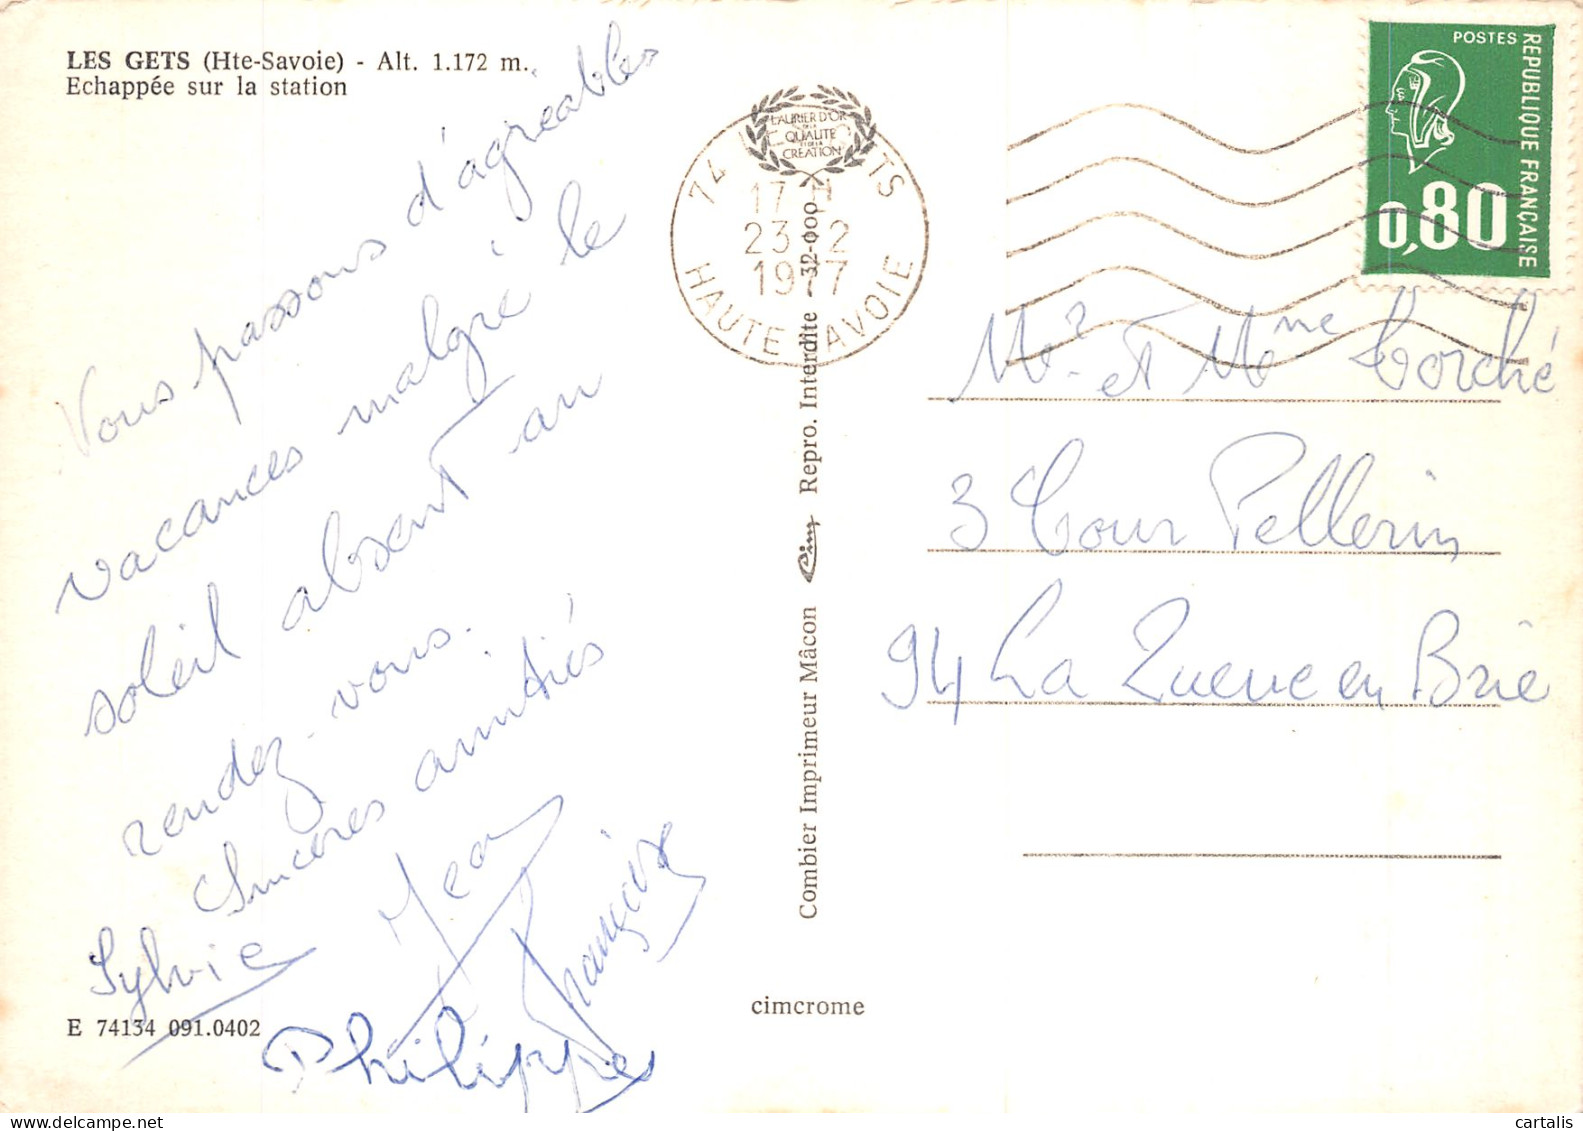 LES GETS (Hte-Savoie) - Alt. 1.172 m.
Echappée sur la station
Vous passons d'agréables
vacances malgré le
soleil absent au
rendez-vous.
Sincères amitiés
Jean
Françoise
Sylvie
Philippe
E 74134 091.0402
LAURIER D'OR
DE LA
QUALITE
ET DE LA
CREATION
74 TS
17 H
23-2
1977
HAUTE SAVOIE
Combier Imprimeur Mâcon Cim Repro. Interdite - 32-000
cimcrome
POSTES
REPUBLIQUE FRANÇAISE
0,80
Mr et Mme Torché
3 Cour Pellerin
94 La Queue en Brie
cartalis